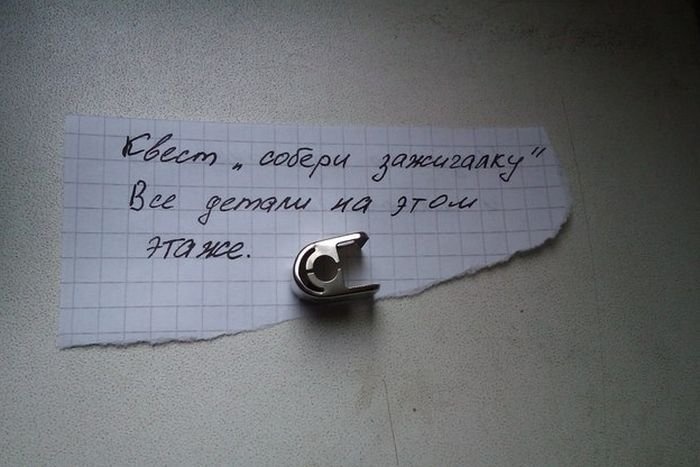 Квест „ собери зажигалку"
Все детали на этом
этаже.